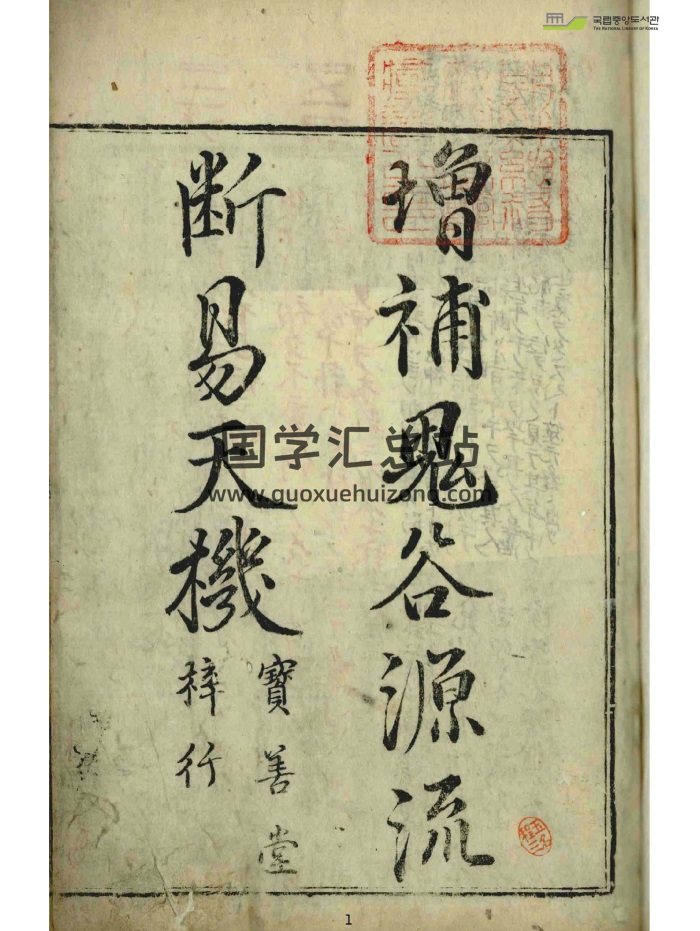 국립중앙도서관
THE NATIONAL LIBRARY OF KOREA
增補鬼谷源流
斷易天機
寶善堂
梓行
国学汇总站
www.guoxuehuizong.com
1